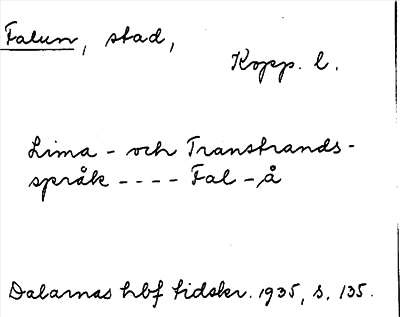 Falun, stad,
Kopp. l.
Lima - och Transtrands-
språk - - - - Fal - å
Dalarnas hbf tidskr. 1935, s. 135.